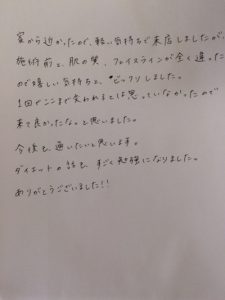 家から近かったので、軽い気持ちで来店しましたが、
施術前と、肌の質、フェイスラインが全く違った
ので嬉しい気持ちと、ビックリしました。
1回でここまで変われるとは思っていなかったので
来て良かったなっと思いました。
今後も、通いたいと思います。
ダイエットの話も、すごく勉強になりました。
ありがとうございました!!